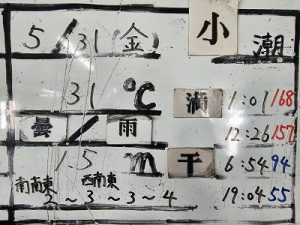 5/31(金) 小潮
31℃ 満 1:01 168
曇/雨 12:26 157
15m 干 6:54 94
南南東 西南東 19:04 55
2~3~3~4